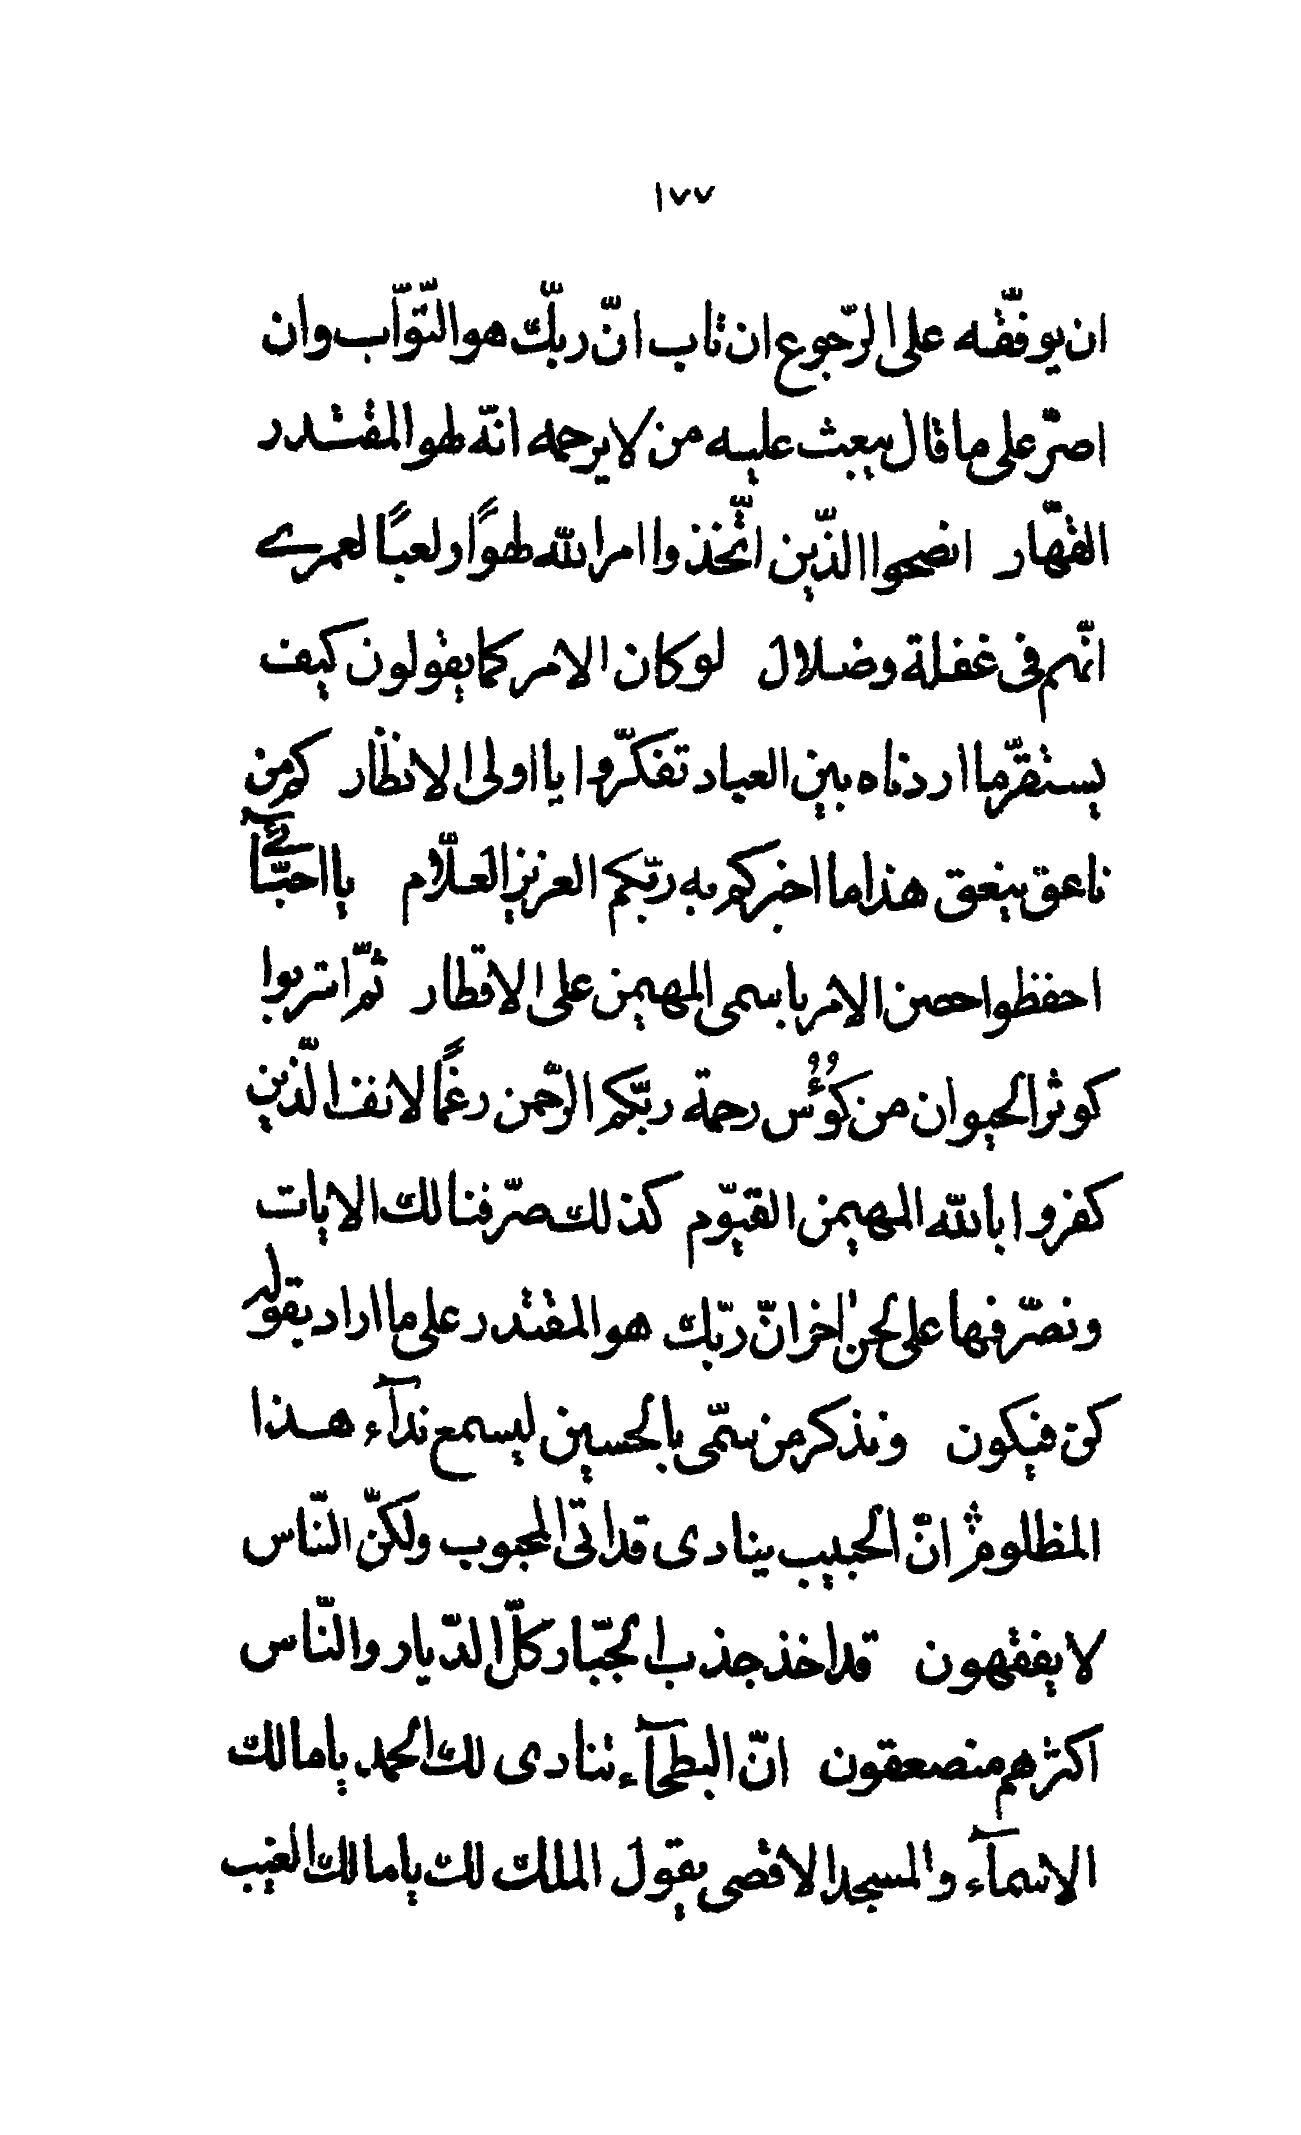 ١٧٧
ان يوفّقه على الرّجوع ان تاب انّ ربّك هو التّوّاب وان
اصرّ على ما قال يبعث عليه من لا يرحمه انّه لهو المقتدر
القهّار انصحوا الّذين اتّخذوا امر الله لهوًا ولعبًا لعمرى
انّهم فى غفلة وضلال لو كان الامر كما يقولون كيف
يستقرّ ما اردناه بين العباد تفكّروا يا اولى الانظار كم من
ناعق ينعق هذا ما اخبركم به ربّكم العزيز العلّام يا احبّآئى
احفظوا حصن الامر باسمى المهيمن على الاقطار ثمّ اشربوا
كوثر الحيوان من كؤس رحمة ربّكم الرّحمن رغمًا لانف الّذين
كفروا بالله المهيمن القيّوم كذلك صرّفنا لك الايات
ونصرّفها على لحن اخر انّ ربّك هو المقتدر على ما اراد بقوله
كن فيكون ونذكر من سمّى بالحسين ليسمع ندآء هذا
المظلوم انّ الحبيب ينادى قد اتى المحبوب ولكنّ النّاس
لا يفقهون قد اخذ جذب الجبّار كلّ الدّيار والنّاس
اكثرهم منصعقون انّ البطحآء تنادى لك الحمد يا مالك
الاسمآء والمسجد الاقصى يقول الملك لك يا مالك الغيب